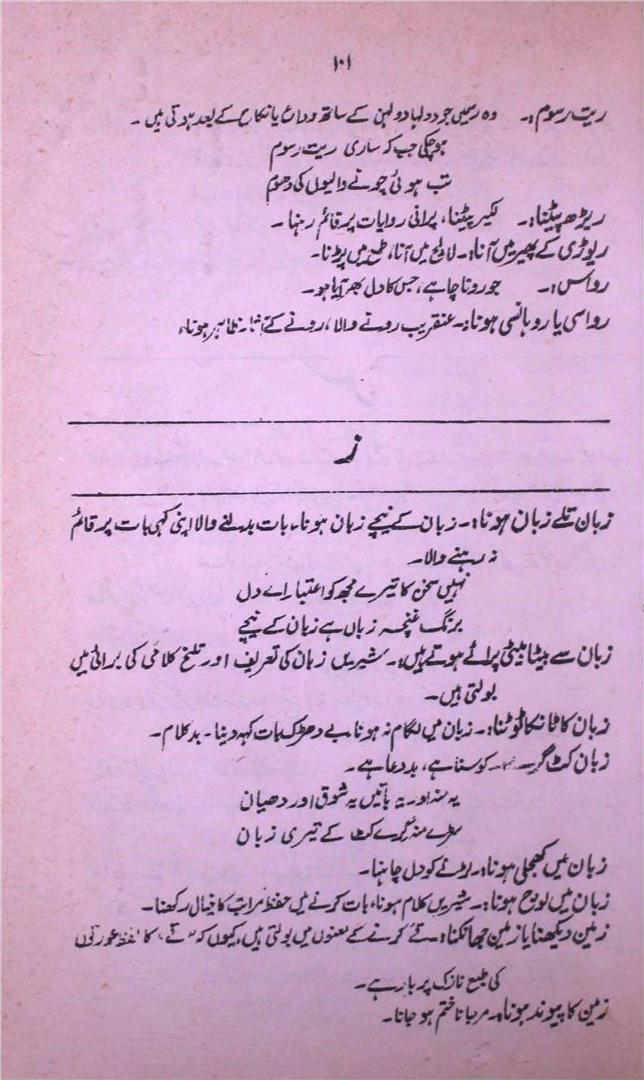 ۱۰۱
ریت رسوم:۔ وہ رسمیں جو دولہا دولہن کے ساتھ وداع یا نکاح کے بعد ہوتی ہیں ۔
ہو چکی جب کہ ساری ریت رسوم
تب ہوئی چونے والیوں کی دھوم
ریڑھ پیٹنا:۔ لکیر پیٹنا، پرانی روایات پر قائم رہنا ۔
ریوڑی کے پھیر میں آنا:۔ لالچ میں آنا، طمع میں پڑنا۔
رواس:۔ جو رونا چاہے، جس کا دل بھر آیا ہو۔
رواسی یا روہانسی ہونا:۔ عنقریب رونے والا، رونے کے آثار ظاہر ہونا،
ز
زبان تلے زبان ہونا:۔ زبان کے نیچے زبان ہونا، بات بدلنے والا اپنی کہی بات پر قائم
نہ رہنے والا۔
نہیں سخن کا تیرے مجھ کو اعتبار اے دل
برنگ غنچہ زباں ہے زبان کے نیچے
زبان سے بیٹا بیٹی پرائے ہوتے ہیں:۔ شیریں زبان کی تعریف اور تلخ کلامی کی برائی میں
بولتی ہیں۔
زبان کا ٹانکا ٹوٹنا:۔ زبان میں لگام نہ ہونا، بے دھڑک بات کہہ دینا ۔ بد کلام۔
زبان کٹ گرے:۔ کوسنا ہے، بد دعا ہے۔
یہ منہ اور یہ باتیں یہ شوق اور دھیان
سڑے منہ گرے کٹ کے تیری زبان
زبان میں کھجلی ہونا:۔ لڑنے کو دل چاہنا۔
زبان میں لوچ ہونا:۔ شیریں کلام ہونا، بات کرنے میں حفظ مراتب کا خیال رکھنا۔
زمین دیکھنا یا زمین جھانکنا:۔ قے کرنے کے معنوں میں بولتی ہیں، کیوں کہ "قے" کا لفظ عورتوں
کی طبع نازک پر بار ہے۔
زمین کا پیوند ہونا:۔ مر جانا ختم ہو جانا۔